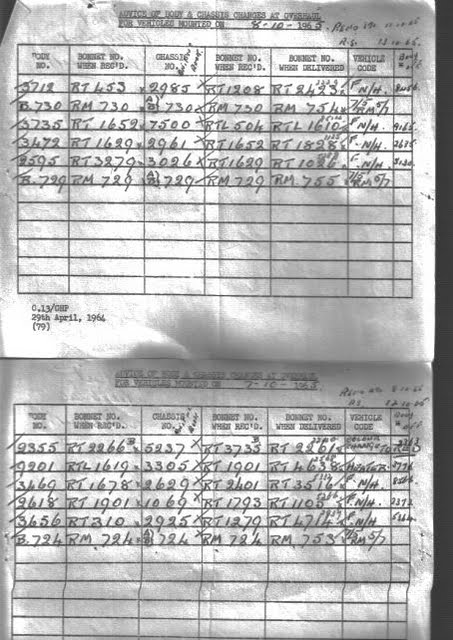 ADVICE OF BODY & CHASSIS CHANGES AT OVERHAUL
FOR VEHICLES MOUNTED ON 8-10-1965
BODY NO. BONNET NO. WHEN REC'D. CHASSIS NO. BONNET NO. WHEN REC'D. BONNET NO. WHEN DELIVERED VEHICLE CODE Body
3712 RT 453 2985 RT 1208 RT 2423 F N/H.
B.730 RM 730 A) B) 730 RM 730 RM 754 7/5 RM 5/7
3735 RT 1652 7500 RTL 504 RTL 1610 F N/H. 9165
3472 RT 1629 2961 RT 1652 RT 1828 F. N/H. 2675
2595 RT 3279 3026 RT 1629 F. N/H. 3130
B.729 RM 729 A) B) 729 RM 729 RM 755 7/5 RM 5/7
C.13/CHP
29th April, 1964
(79)
ADVICE OF BODY & CHASSIS CHANGES AT OVERHAUL
FOR VEHICLES MOUNTED ON 7-10-1965
BODY NO. BONNET NO. WHEN REC'D. CHASSIS NO. BONNET NO. WHEN REC'D. BONNET NO. WHEN DELIVERED VEHICLE CODE Body
2355 RT 2266 5237 RT 3735 RT 2261 COLOUR CHANGE TO RED
9201 RTL 1619 3305 RT 1901 RT 4638 HEATER
3469 RT 1678 2629 RT 2401 RT 3516 F. N/H.
2618 RT 1901 1069 RT 1793 RT 1105 F. N/H. 2372
3656 RT 310 2925 RT 1279 RT 4714 F. N/H.
B.724 RM 724 A) B) 724 RM 724 RM 753 7/5 RM 5/7